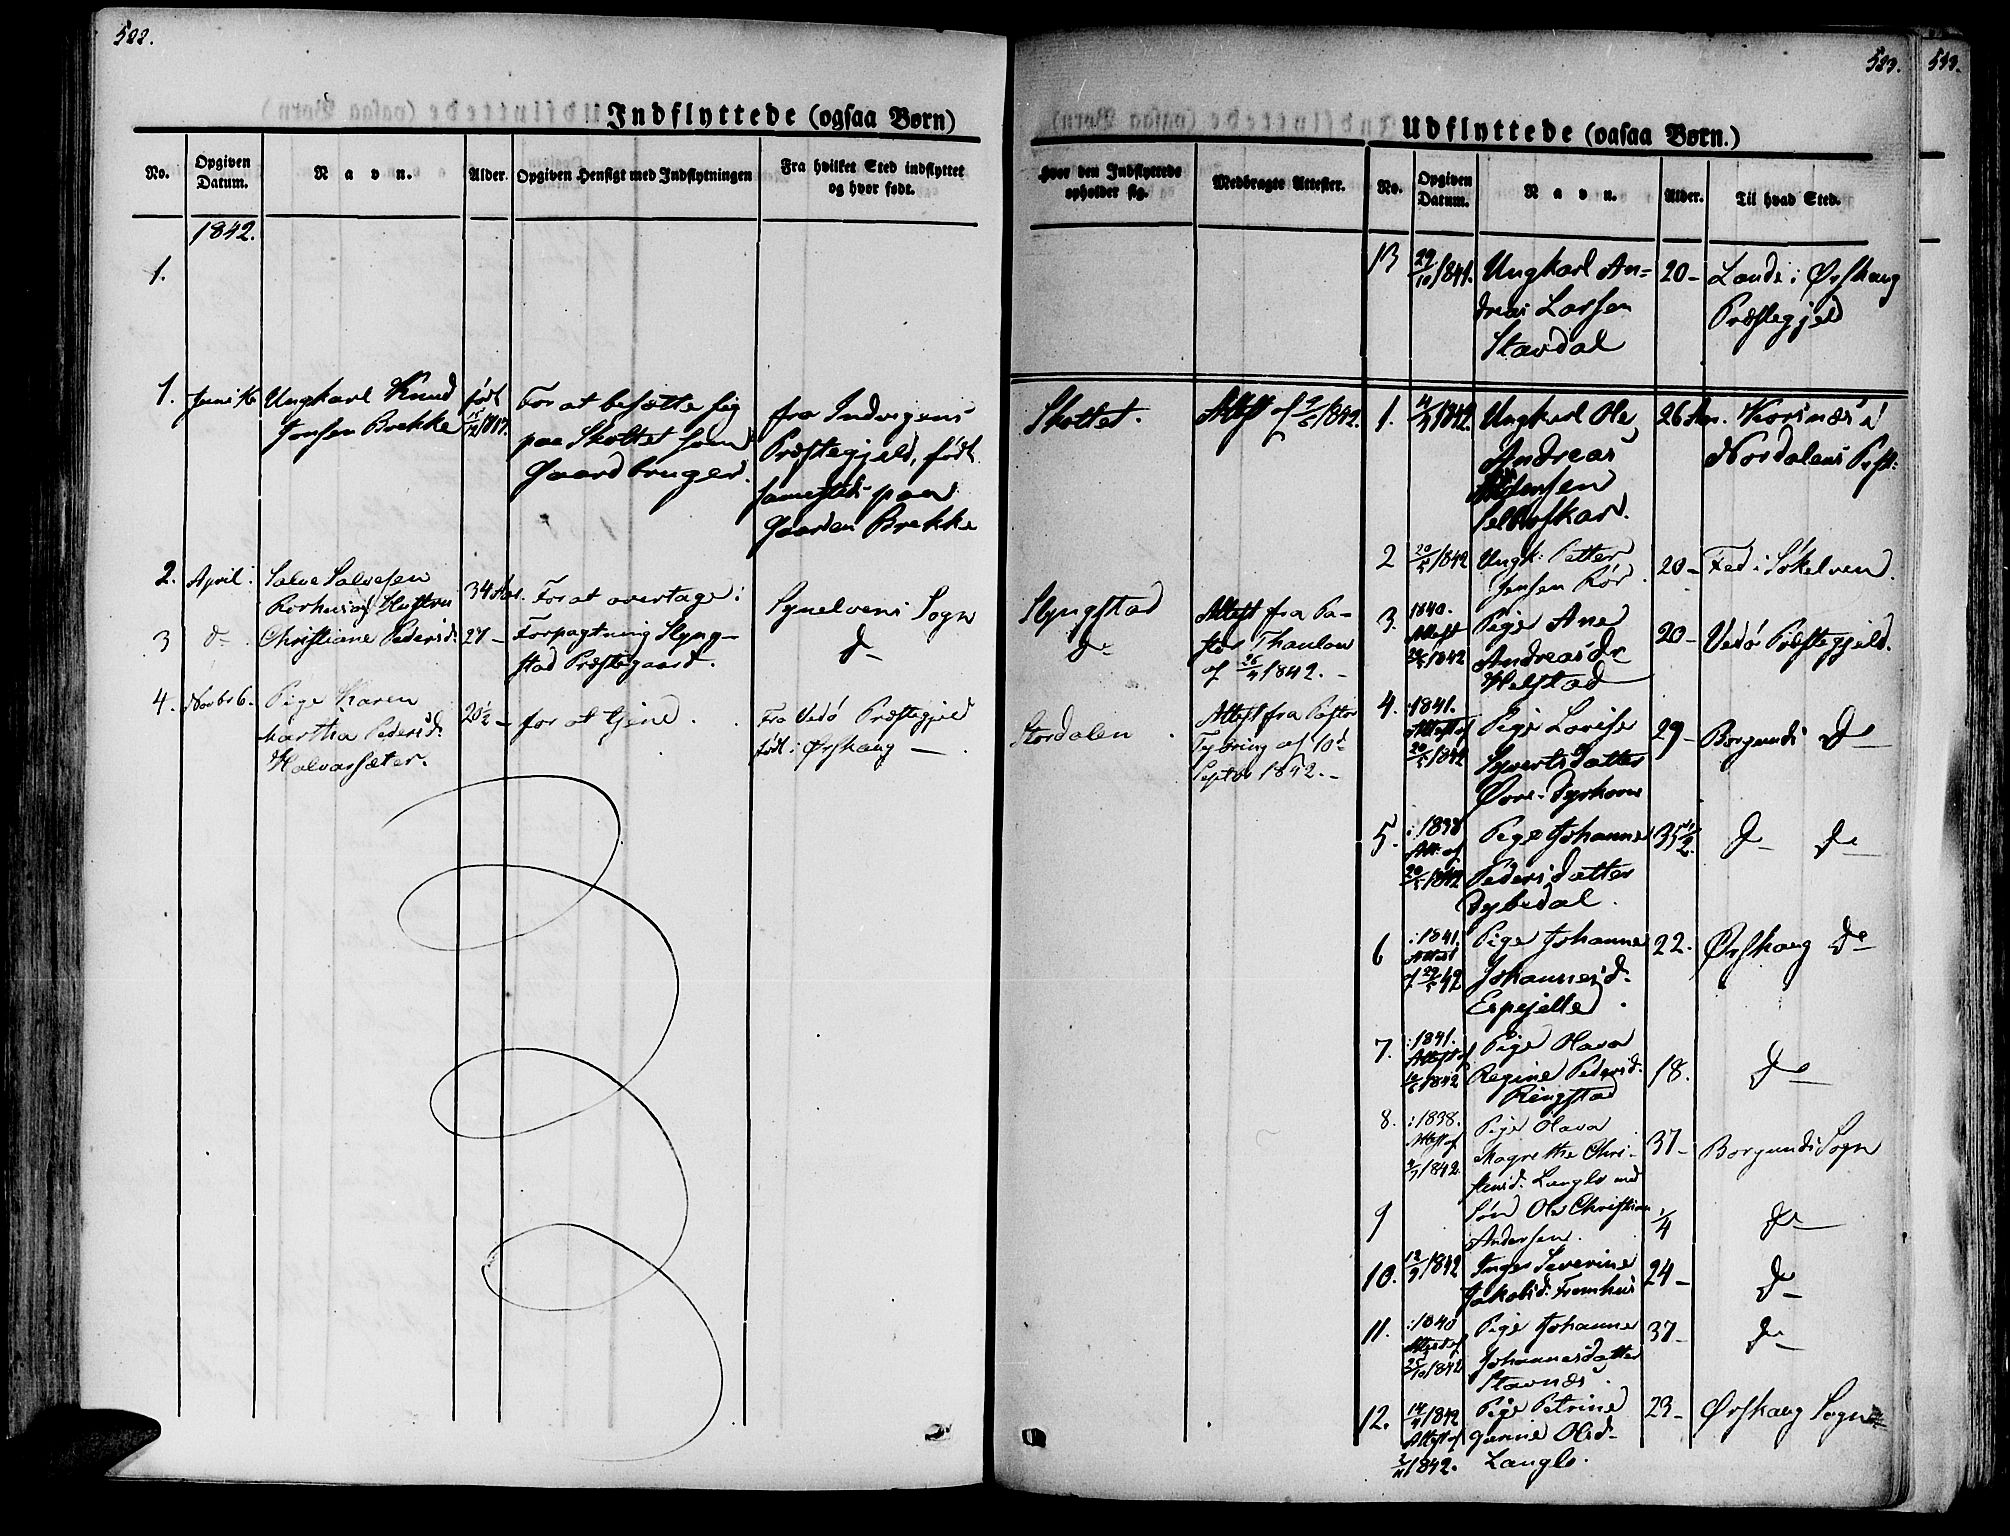 522.
Indflyttede (ogsaa Børn)
No.
Opgiven Datum.
Navn.
Alder.
Opgiven Hensigt med Indflytningen
Fra hvilket Sted indflyttet og hvor født.
1842.
1.
1. Juni
Ungkarl Knud
Jonsen Brekke
født
15/12 1817.
For at besætte sig
paa Skottet som
Gaardbruger.
fra Indvigens
Præstegjeld, født
sammesteds paa
Gaarden Brekke
2. April
Salve Salvesen
Hustru
34 Aar.
For at overtage i
Synelvens Sogn
3 do
Christiane Pedersd.
27 –
Forpagtning Slyng-
stad Præstegaard.
do
4. Novbr 6.
Pige Karen
Martha Pedersd.
Halvarsæter.
20½ –
for at tjene.
Fra Vedø Præstegjeld
født i Ørskaug –
523.
533.
Udflyttede (ogsaa Børn.)
Hvor den Indflyttede opholder sig.
Medbragte Attester.
No.
Opgiven Datum.
Navn.
Alder.
Til hvad Sted.
13
29/10 1841.
Ungkarl An-
dreas Larsen
Stavdal
20 –
Lande i Ørskaug
Præstegjeld
Skottet.
Attest af 2/6 1842.
1.
4/3 1842
Ungkarl Ole
Andreas
26 Aar.
Korsnæs i
Nordalens Præst:
2
20/5 1842
Ungk. Petter
Jensen Rør.
20 –
Fed i Søkelven.
Slyngstad
do
Attest fra Pa-
stor Thaulow
af 26/4 1842. –
3.
1840.
Attest
1842
Pige Ane
Andreasdr
Helstad
20 –
Vedø Præstegjeld.
Stordalen
Attest fra Pastor
Tybring af 10de
Septbr 1842. –
4.
1841.
Attest af
20/5 1842
Pige Lovise
Syvertsdatter
Øvre-Dyrhovn
29 –
Borgunds do
5.
: 1838
Att: af
20/5 1842
Pige Johanne
Pedersdatter
Dybedal.
35½.
do do
6
: 1841.
Attest
af 29/5 42
Pige Johanne
Johannesd.
Espehjelle
22.
Ørskaug do
7.
: 1841.
Attest af
1842
Pige Olava
Regine Pedersd.
Ringstad
18.
do
8.
: 1838.
Attest af
4/7 1842.
Pige Olava
Magrethe Chri-
stensd. Langlo med
37 –
Borgunds Sogn
9
Søn Ole Christian
Andersen.
¼
do
10.
12/9 1842
Inger Severine
Jakobsd. Fremhus
24 –
do
11.
: 1840
Attest af
25/10 1842
Pige Johanne
Johannesdatter
Stavnæs.
37 –
do
12.
14/4 1842
Attest af
2/11 1842.
Pige Petrine
Gurine Olsd.
Langlo.
23 –
Ørskaug Sogn